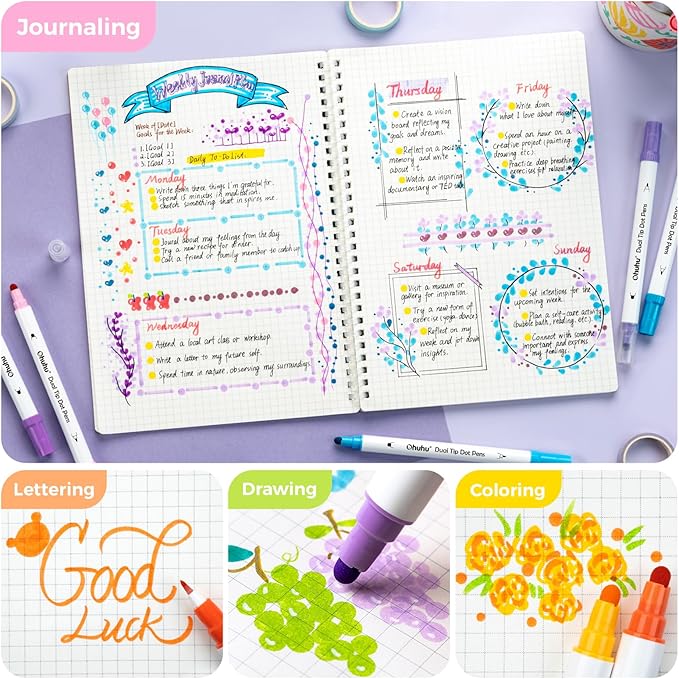 Journaling
Weekly Journal Plan
Week of [Date]
Goals for the Week:
1. [Goal 1]
2. [Goal 2]
3. [Goal 3]
Daily To-Do List:
Monday
Write down three things I'm grateful for.
Spend 15 minutes in meditation.
Sketch something that inspires me.
Tuesday
Joural about my feelings from the day.
Try a new recipe for dinner.
Call a friend or family member to catch up
Wednesday
Attend a local art class or workshop.
Write a letter to my future self.
Spend time in nature, observing my surroundings.
Thursday
Create a vision
board reflecting my
goals and dreams.
Reflect on a positive
memory and write
about it.
Watch an inspiring
documentary or TED
Friday
Write down
what I love about
Spend an hour on a
creative project (painting,
drawing etc).
Practice deep breathing
exercises for relaxation.
Saturday
Visit a museum or
gallery for inspiration.
Try a new form of
exercise (yoga dance)
Reflect on my
week and jot down
insights.
Sunday
Set intentions for the
upcoming week.
Plan a self-care activity
(bubble bath, reading, etc.).
Connect with someone
important and express
my feelings.
Ohuhu® Dual Tip Dot Pens
Ohuhu® Dual Tip Dot Pens
Dual Tip Dot Pens
Ohuhu® Dual Tip Dot Pens
Lettering
Good
Luck
Drawing
Coloring